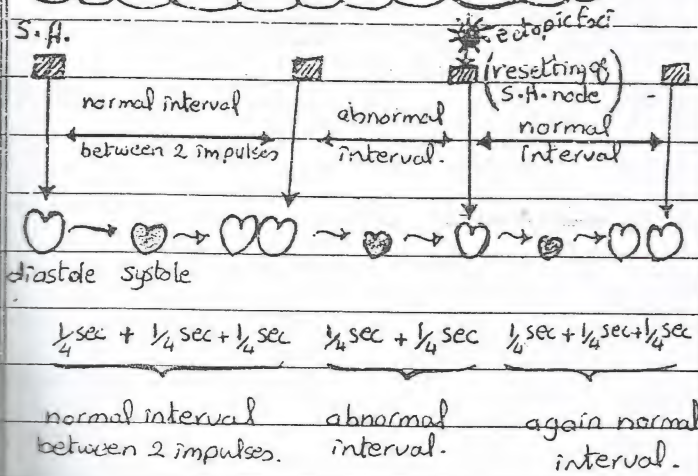 S.A.
ectopic foci
(resetting of
S.A. node)
normal interval
between 2 impulses
abnormal
interval.
normal
interval
diastole systole
1/4 sec + 1/4 sec + 1/4 sec 1/4 sec + 1/4 sec 1/4 sec + 1/4 sec + 1/4 sec
normal interval abnormal again normal
between 2 impulses. interval. interval.